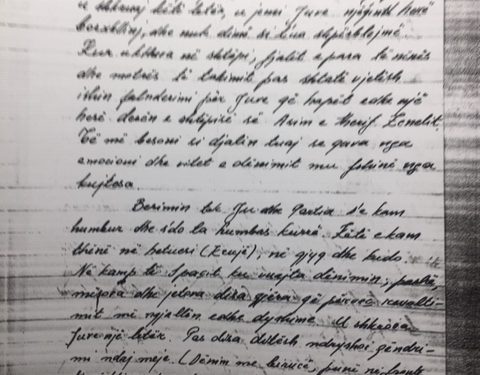 u shkruaj këtë letër, u jemi Juve njëqind herë
borxhlinj, dhe nuk dimë si t'ua shpërblejmë.
Kur u ktheva në shtëpi, fjalët e para të nënës
dhe motrës të takimit pas shtatë vjetësh
ishin falnderimi për Juve që hapët edhe një
herë derën e shtëpisë së Asim e Sherif Zenelit.
Të më besoni si djalin tuaj se qava nga
emocioni dhe vitet e dënimit mu fshinë nga
kujtesa.
Besimin tek Ju dhe Partia s'e kam
humbur dhe s'do ta humbas kurrë. Këtë e kam
thënë në hetuesi (kam), në gjyq dhe kudo.
Në kamp të Spaçit ku vuajta dënimin, pashë,
mësova dhe jetova disa gjëra që përveç revoltimit
mit më ngjallën edhe dyshime. U shkrova
Juve një letër. Pas disa ditësh ndryshoi qëndri-
mi ndaj meje. (Dënim me biruce, punë në